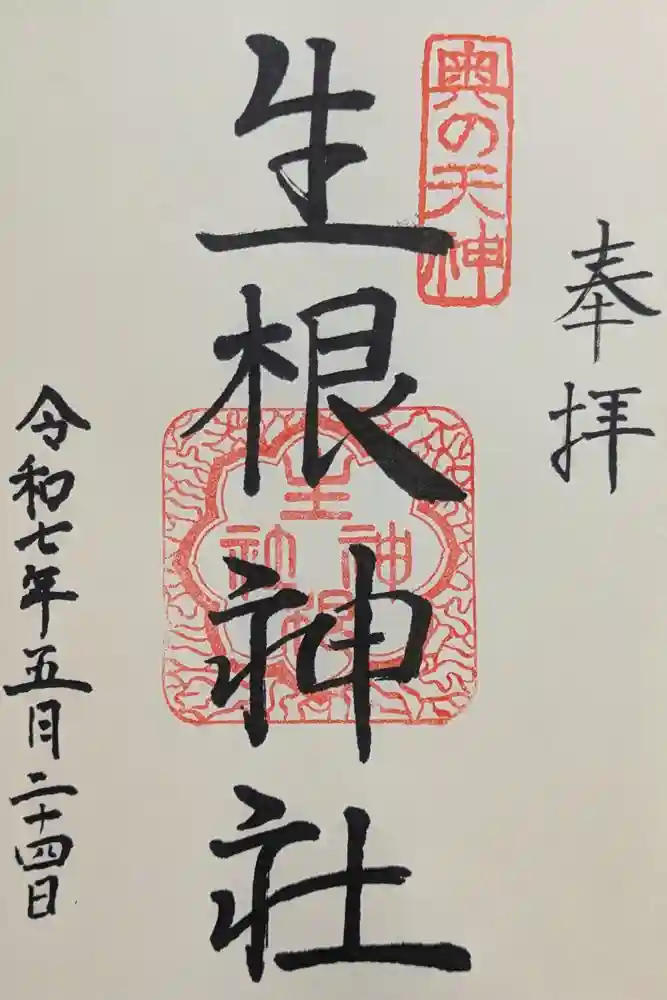 奉拝
奥の天神
生根神社
生根神社
令和七年五月二十四日